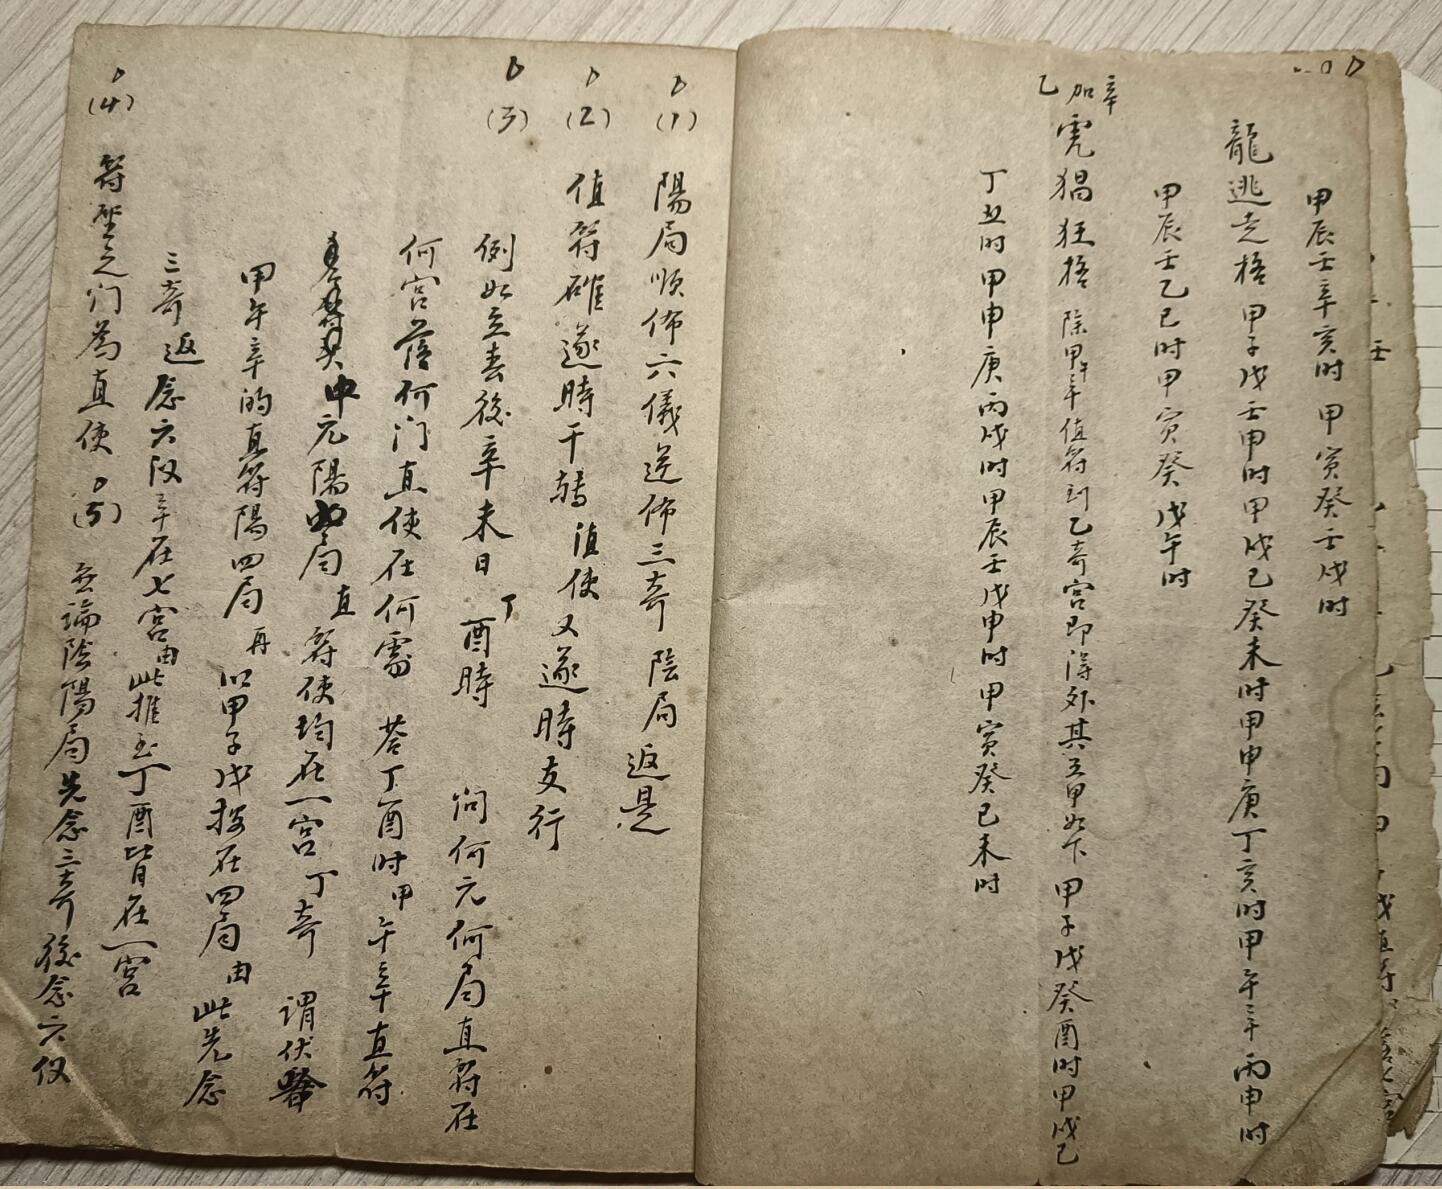 甲辰壬辛亥时 甲寅癸壬戌时
龍逃走格 甲子戊壬申时甲戌己癸未时甲申庚丁亥时甲午辛丙申时
甲辰壬乙巳时甲寅癸戊午时
辛加乙
虎猖狂格 除甲午辛值符到乙奇宫即得外其五甲如下 甲子戊癸酉时甲戌己
丁丑时甲申庚丙戌时甲辰壬戊申时甲寅癸己未时
(1) 陽局順佈六儀逆佈三奇 陰局返是
(2) 值符確遂時干转 值使又遂時支行
(3) 例如立春後辛未日丁酉時 问何元何局直符在
何宫落何门直使在何處 答丁酉时甲午辛直符
中元陽局直符使均在一宫丁奇 谓伏
甲午辛的直符陽四局再以甲子戊按在四局由此先念
三奇返念六仪辛在七宫由此推至丁酉皆在一宫
(4) 符坐之门為直使 (5) 无論陰陽局先念三奇後念六仪